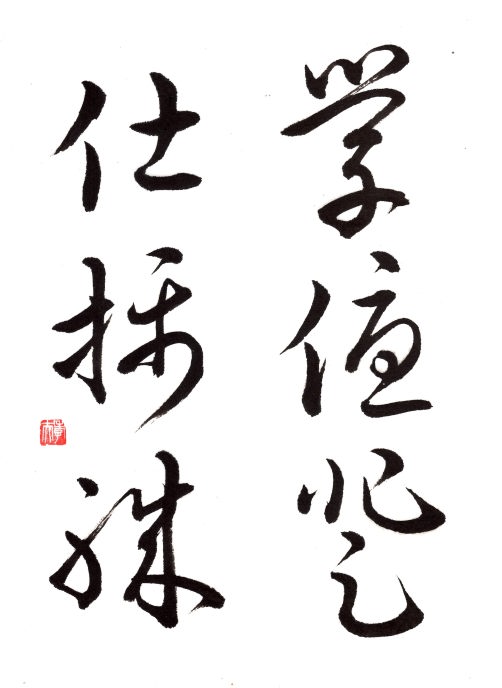 學優登
仕攝職